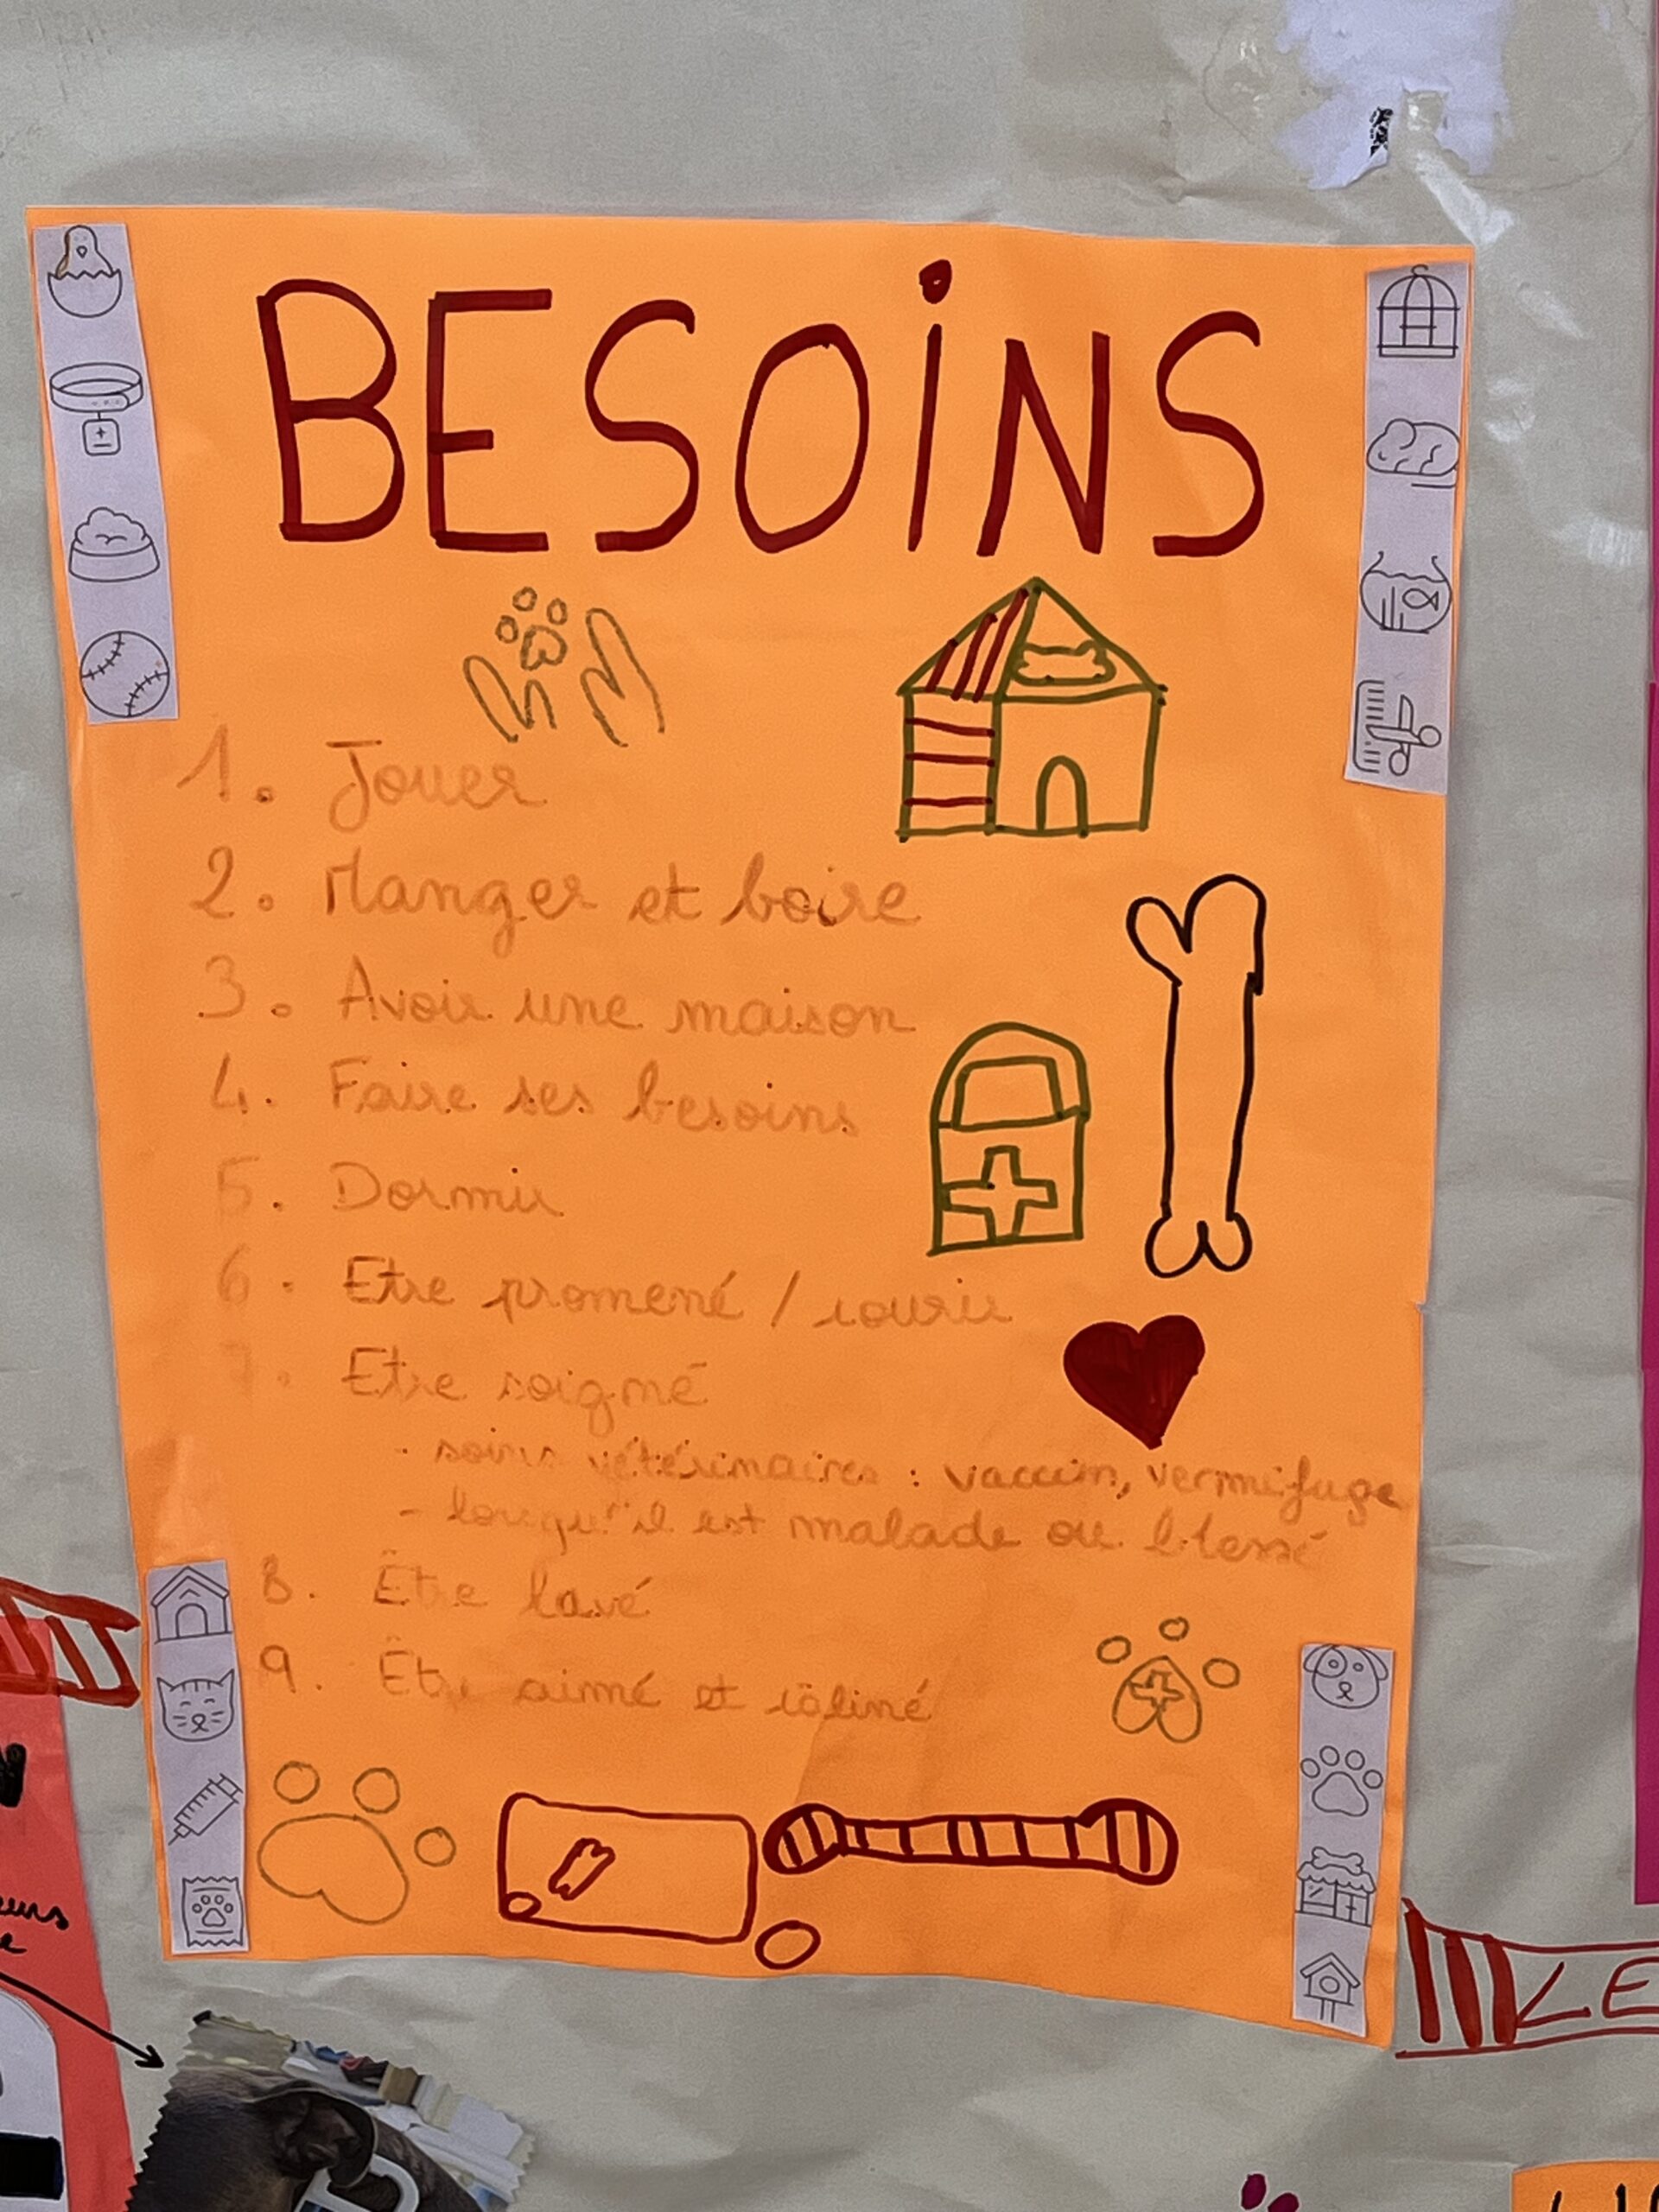 BESOiNS
1. Jouer
2. Manger et boire
3. Avoir une maison
4. Faire ses besoins
5. Dormir
6. Etre promené / courir
7. Etre soigné
- soins vétérinaires : vaccin, vermifuge
- lorsqu'il est malade ou blessé
8. Être lavé
9. Être aimé et câliné
LE